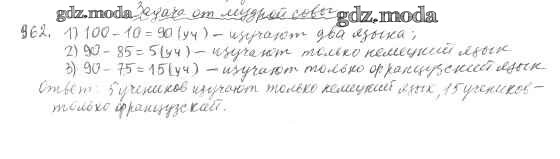 gdz.moda Задача от мудрой совы gdz.moda
962. 1) 100 - 10 = 90 (уч) - изучают два языка;
2) 90 - 85 = 5 (уч) - изучают только немецкий язык
3) 90 - 75 = 15 (уч) - изучают только французский язык
Ответ: 5 учеников изучают только немецкий язык, 15 учеников -
только французский.